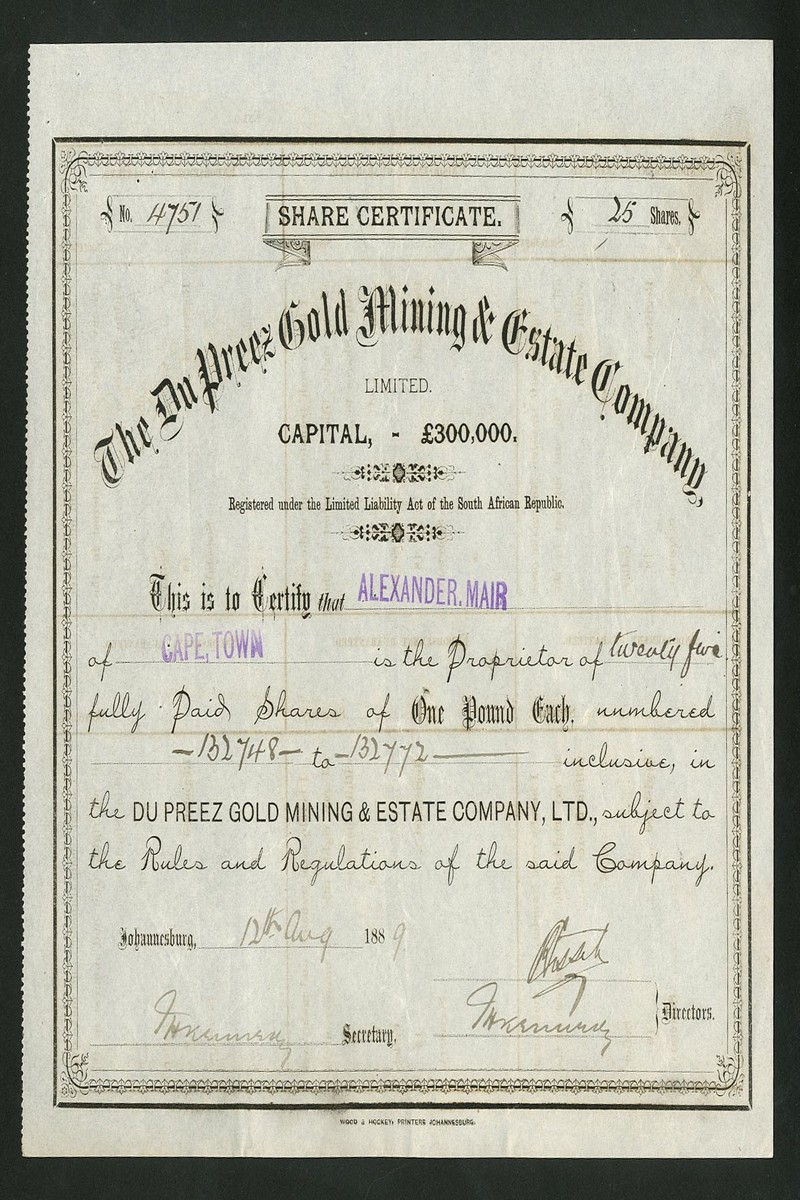 No. 4751
SHARE CERTIFICATE.
25 Shares.
The Du Preez Gold Mining & Estate Company,
LIMITED.
CAPITAL, - £300,000.
Registered under the Limited Liability Act of the South African Republic.
This is to Certify that ALEXANDER. MAIR
of CAPE, TOWN is the Proprietor of twenty five
fully Paid Shares of One Pound Each, numbered
-132748- to -132772- inclusive, in
the DU PREEZ GOLD MINING & ESTATE COMPANY, LTD., subject to
the Rules and Regulations of the said Company.
Johannesburg, 12th Aug 1889
Secretary.
Directors.
WOOD & HOCKEY, PRINTERS JOHANNESBURG.